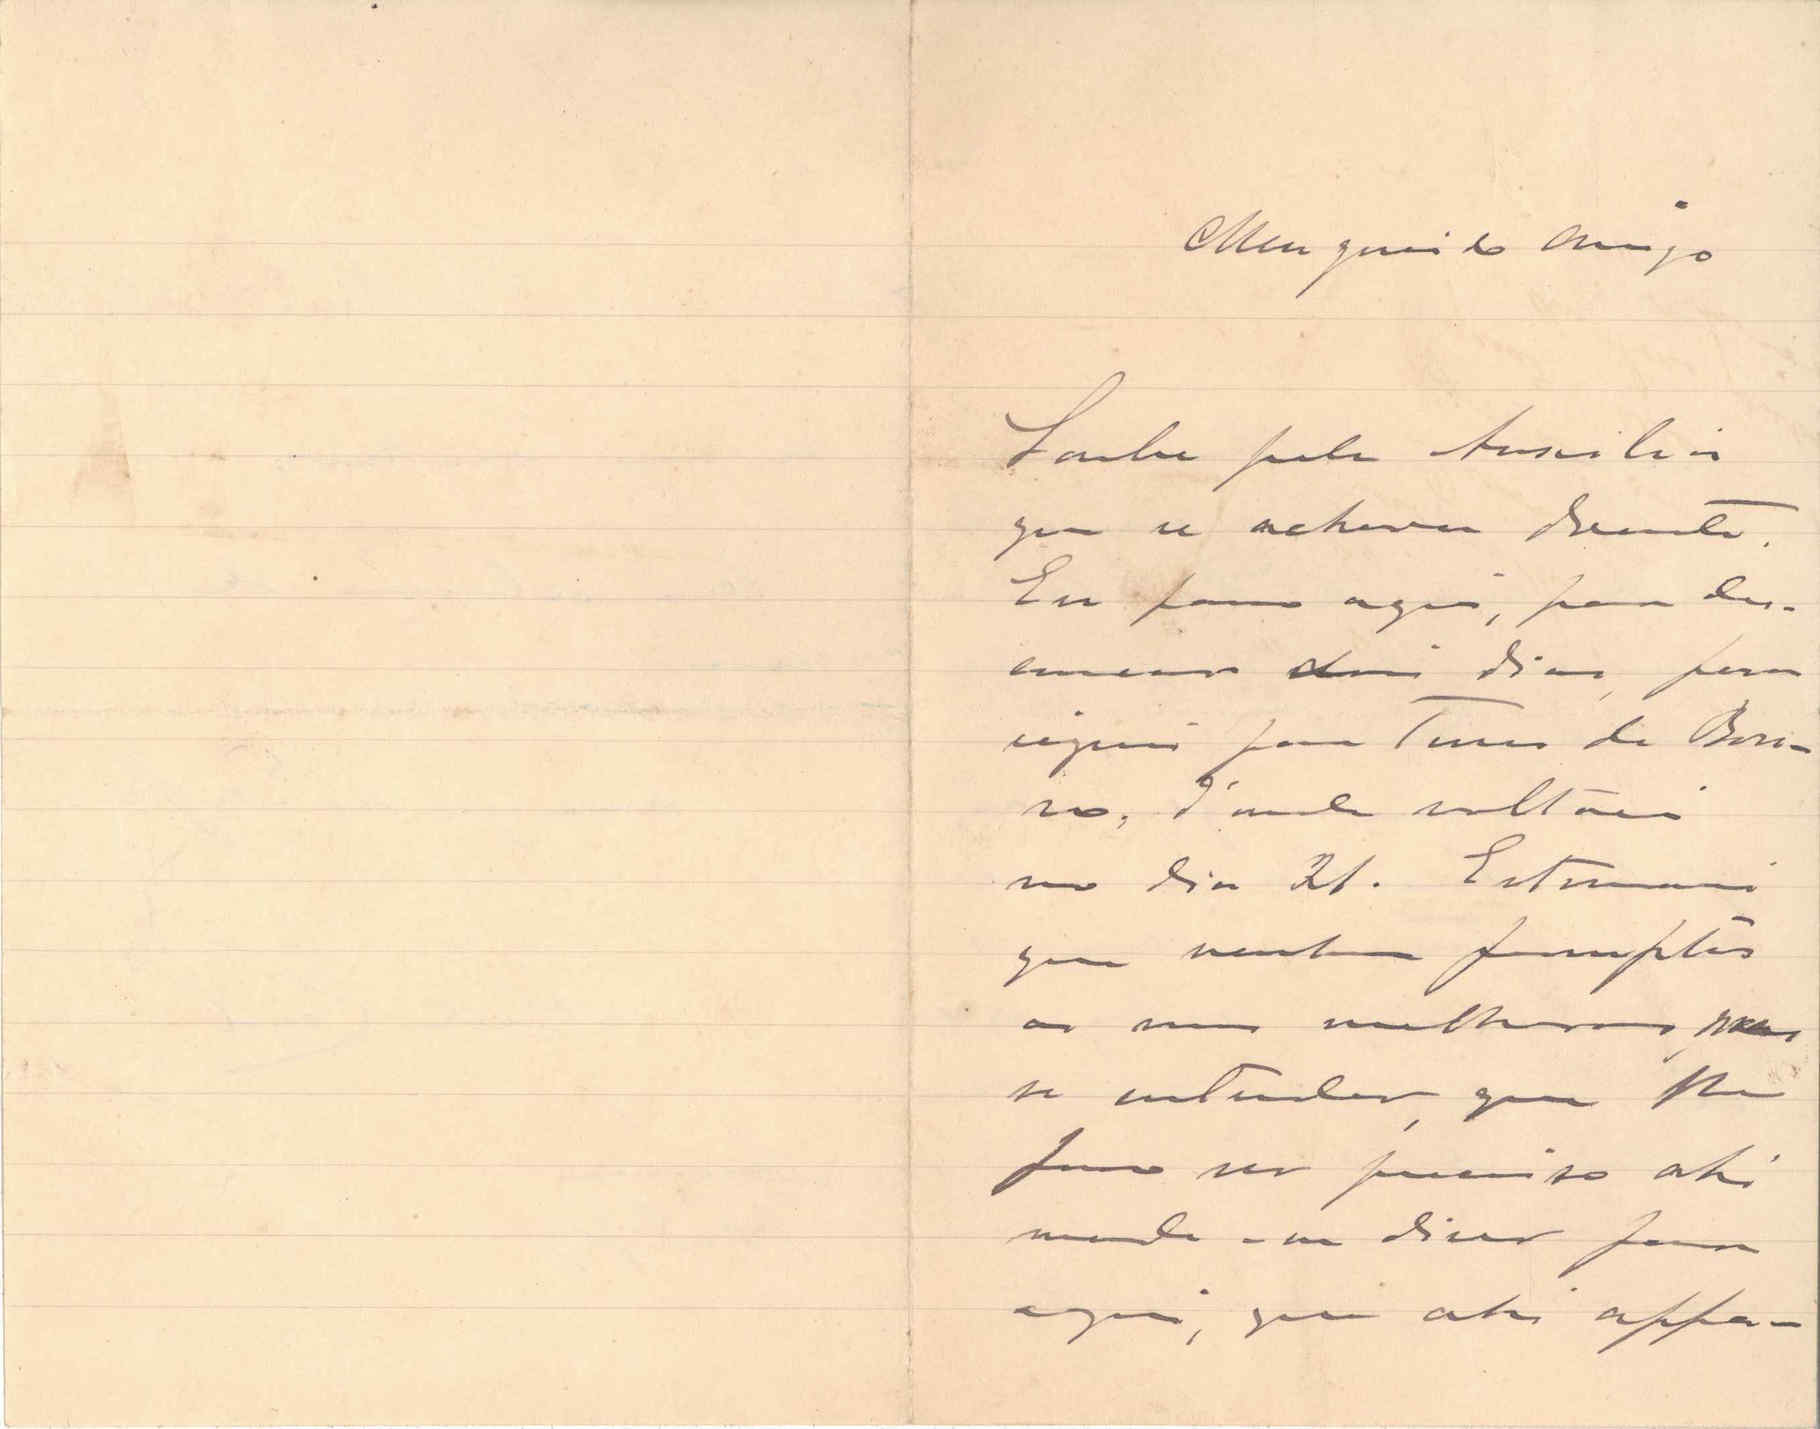 Meu querido Amigo
Soube pela Auxilia
que se achava doente.
Eu paro aqui, para des-
cançar dois dias, para
seguir para Terras de Bou-
ro, d'onde voltarei
no dia 21. Estimarei
que tenha promptas
as suas melhoras, mas
se entender, que lhe
posso ser preciso ahi
mande-me dizer para
aqui, que ahi appa-